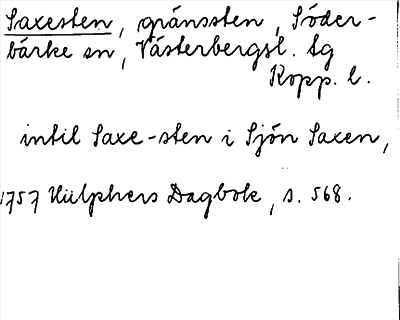 Saxesten, gränssten, Söder-
bärke sn, Västerbergsl. tg
Kopp. l.
intil Saxe-sten i Sjön Saxen,
1757 Hülphers Dagbok, s. 568.